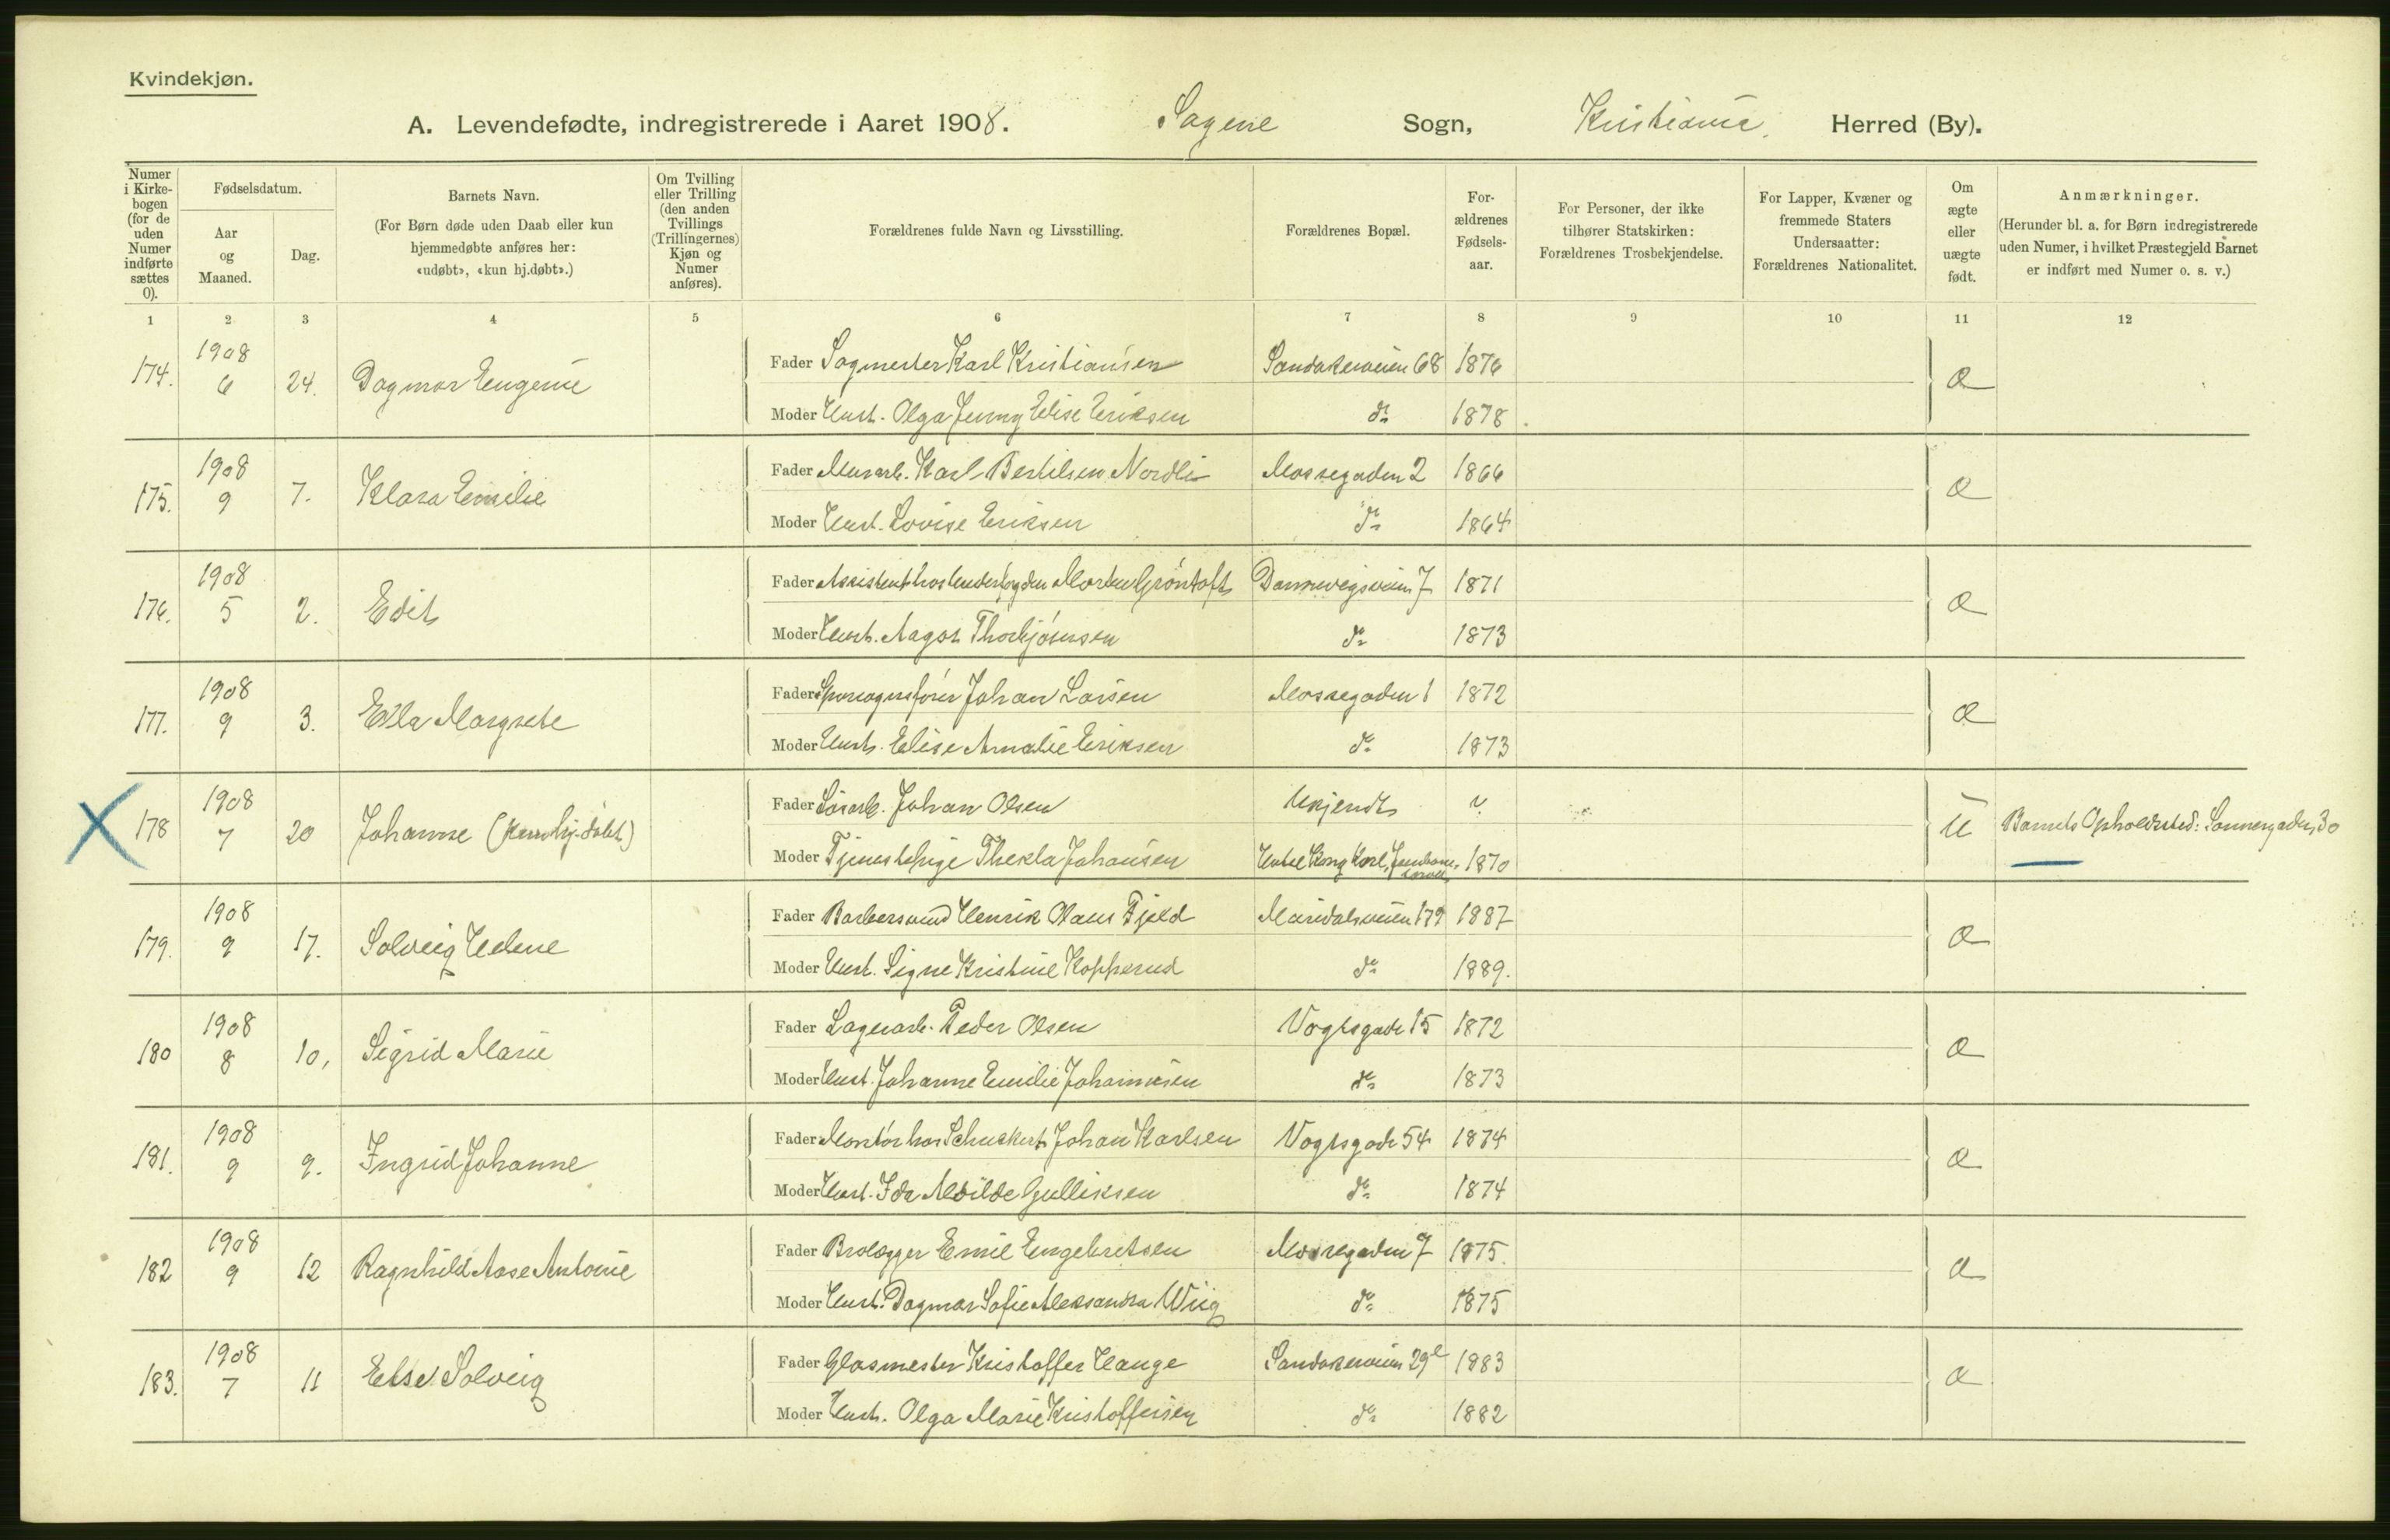 Kvindekjøn.
A. Levendefødte, indregistrerede i Aaret 1908. Sagene Sogn, Kristiania. Herred (By).
Numer i Kirkebogen (for de uden Numer indførte sættes 0).
Fødselsdatum.
Aar og Maaned.
Dag.
Barnets Navn.
(For Børn døde uden Daab eller kun hjemmedøbte anføres her: «udøbt», «kun hj.døbt».)
Om Tvilling eller Trilling (den anden Tvillings (Trillingernes) Kjøn og Numer anføres).
Forældrenes fulde Navn og Livsstilling.
Forældrenes Bopæl.
Forældrenes Fødselsaar.
For Personer, der ikke tilhører Statskirken: Forældrenes Trosbekjendelse.
For Lapper, Kvæner og fremmede Staters Undersaatter: Forældrenes Nationalitet.
Om ægte eller uægte født.
Anmærkninger.
(Herunder bl. a. for Børn indregistrerede uden Numer, i hvilket Præstegjeld Barnet er indført med Numer o. s. v.)
1 2 3 4 5 6 7 8 9 10 11 12
174. 1908 6 24. Dagmar Eugenie
Fader Sagmester Karl Kristiansen Sandakerveien 68 1876 æ
Moder Hust. Olga Jenny Elise Eriksen do 1878
175. 1908 9 7. Klara Emilie
Fader Murarb. Karl Bertilsen Nordli Mossegaden 2 1866 æ
Moder Hust. Lovise Eriksen do 1864
176. 1908 5 2. Edit
Fader Assistent hos Underfogden Morten Grøntoft Dannevigsveien 7 1871 æ
Moder Hust. Aagot Thorbjørnsen do 1873
177. 1908 9 3. Ella Margrete
Fader Sporvognsfører Johan Larsen Mossegaden 1 1872 æ
Moder Hust. Elise Amalie Eriksen do 1873
178 1908 7 20 Johanne (kun hj.døbt)
Fader Løsarb. Johan Olsen Ukjendt ? u Barnets Opholdssted: Sannergaden 30
Moder Tjenestepige Thekla Johansen Hotel Kong Karl, Jernbane- torvet 1870
179. 1908 9 17. Solveig Helene
Fader Barbersvend Henrik Olaus Fjeld Maridalsveien 179 1887 æ
Moder Hust. Signe Kristine Kopperud do 1889.
180 1908 8 10, Sigrid Marie
Fader Lagerarb. Peder Olsen Vogtsgade 15 1872 æ
Moder Hust. Johanne Emilie Johannesen do 1873
181. 1908 9 9. Ingrid Johanne
Fader Montør hos Schuckert Johan Karlsen Vogtsgade 54 1874 æ
Moder Hust. Ida Alvilde Gulliksen do 1874
182 1908 9 12 Ragnhild Aase Antonie
Fader Brolægger Emil Engebretsen Mossegaden 7 1875. æ
Moder Hust. Dagmar Sofie Aleksandra Wiig do 1875
183. 1908 7 11 Else Solveig
Fader Glasmester Kristoffer Hauge Sandakerveien 29e 1883 æ
Moder Hust. Olga Marie Kristoffersen do 1882